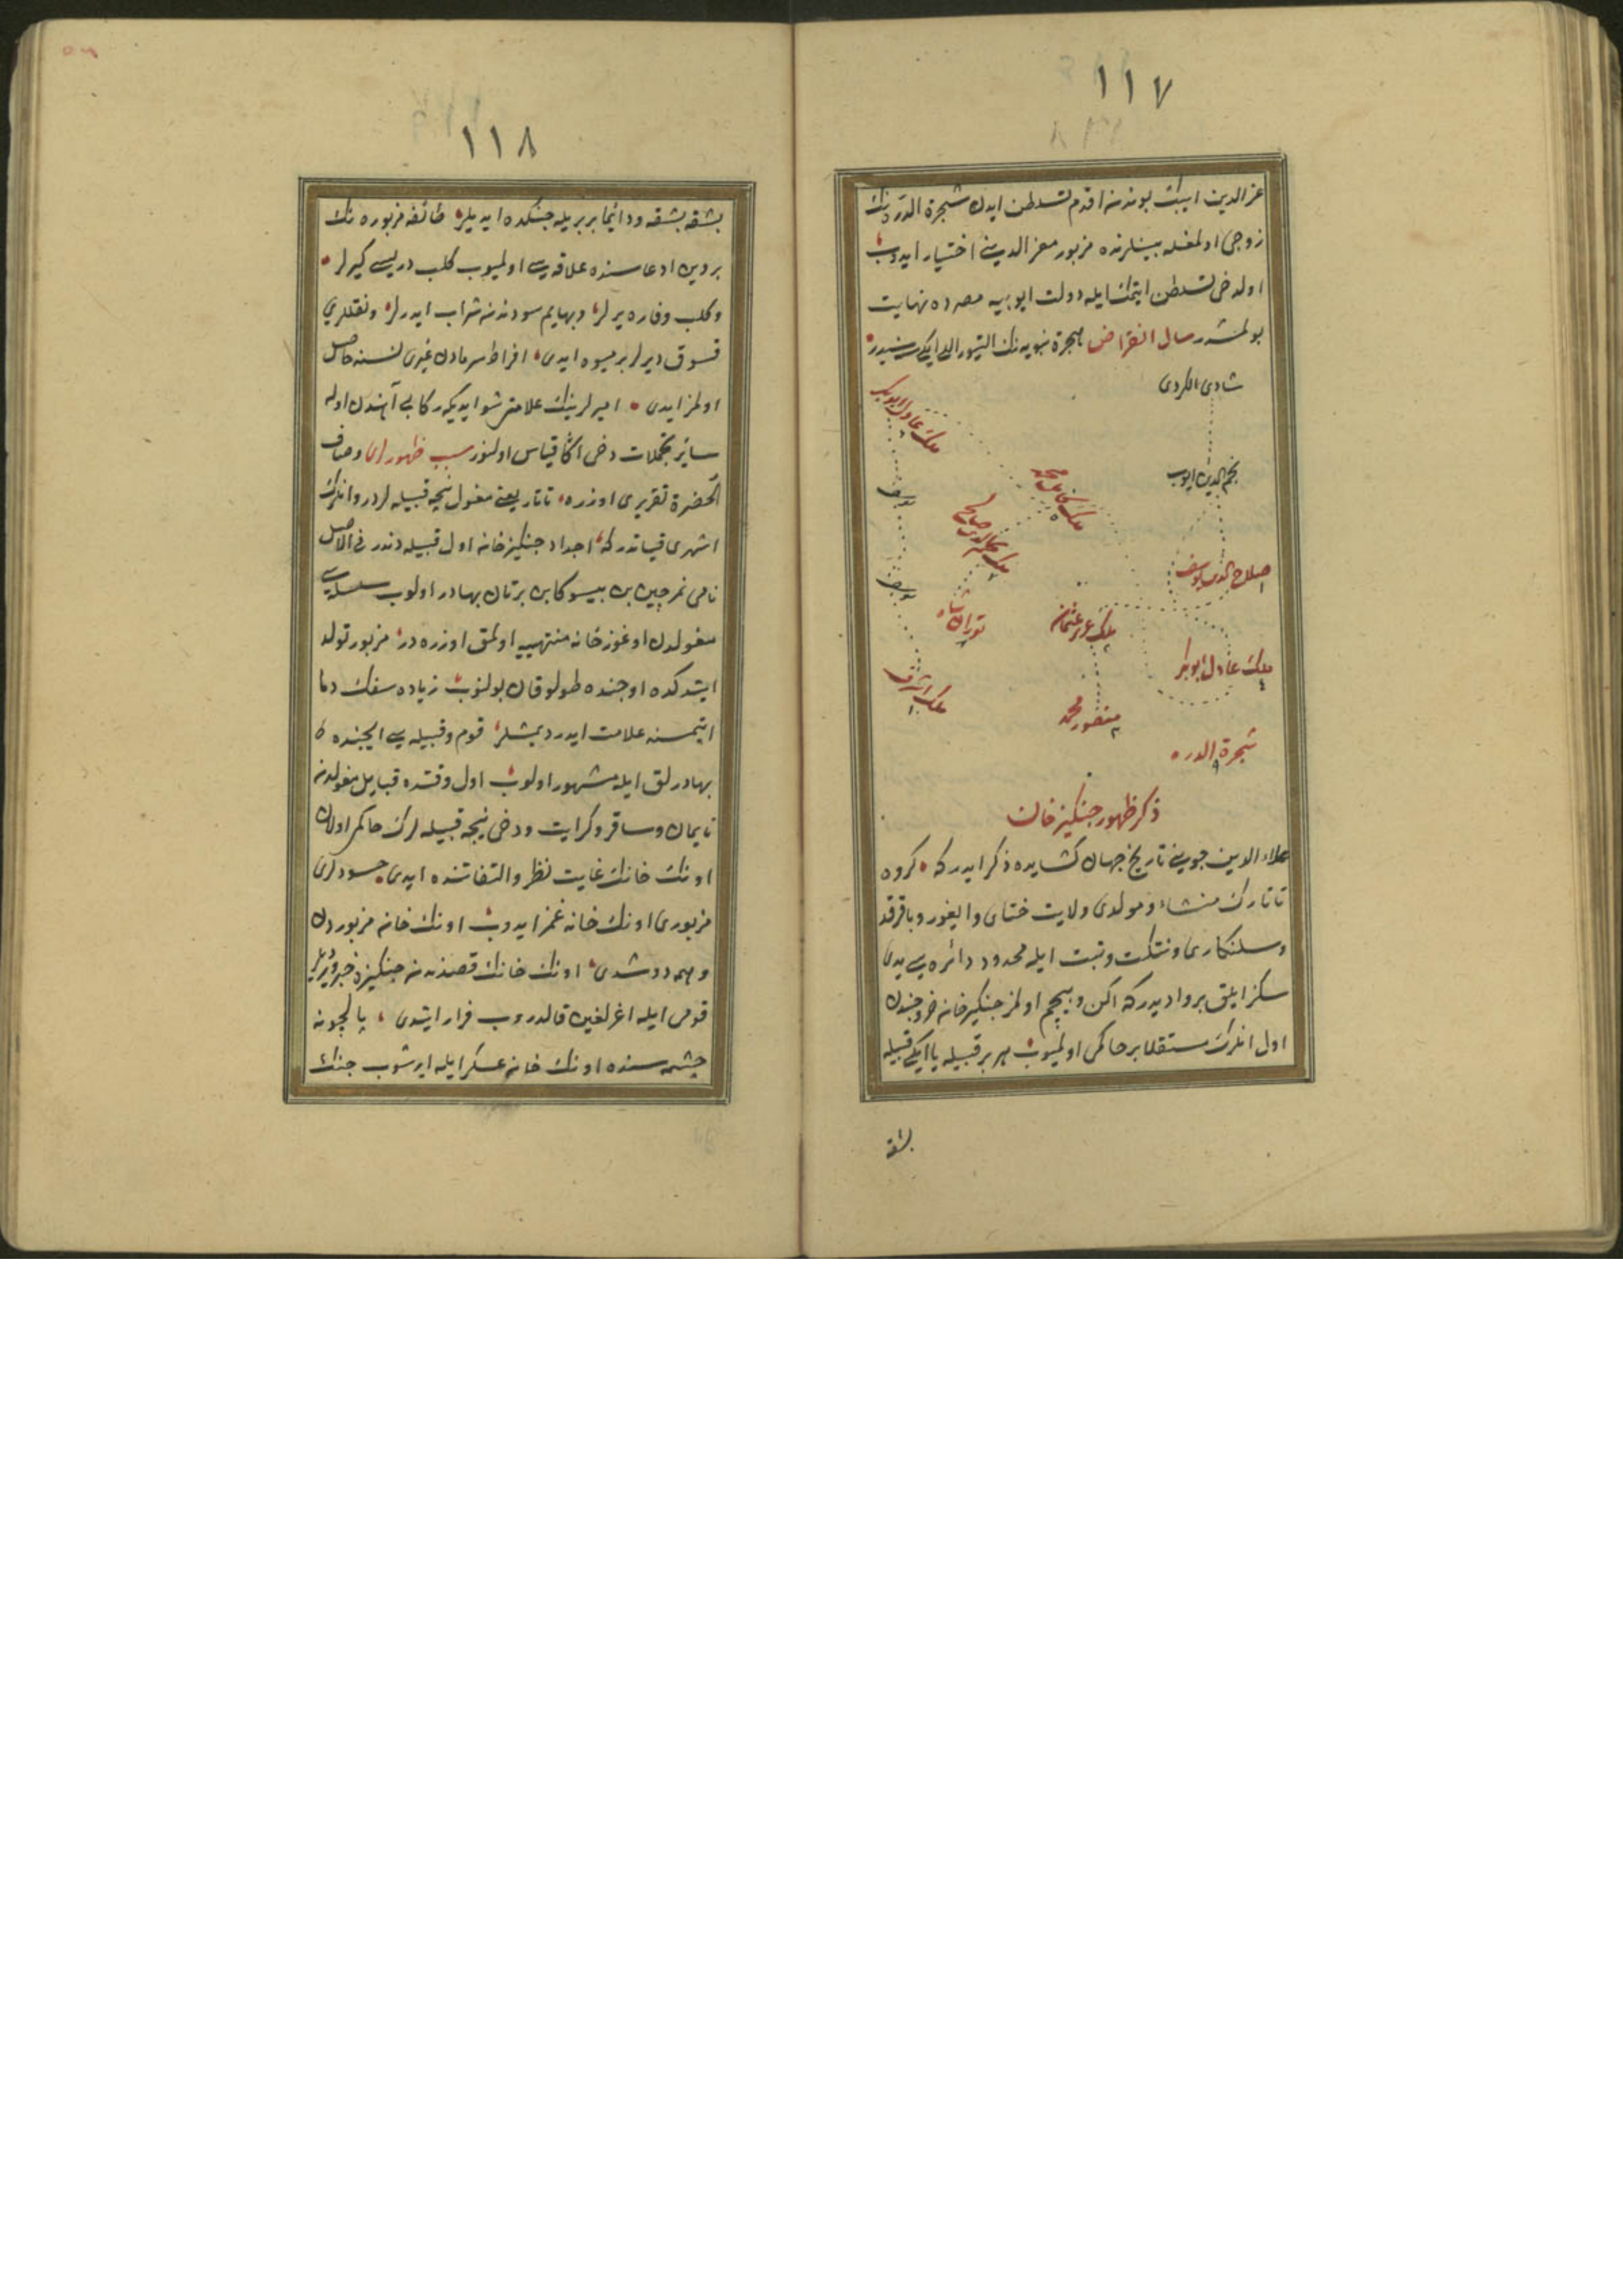 ١١٧
عز الدين ايبك بوندن اقدم تسلطن ايدن شجرة الدرنك
زوجى اولمغله بينلرنده مزبور معز الدينى اختيار ايدوب
اولدخى تسلطن ايتمك ايله دولت ايوبيه مصرده نهايت
بولمشدر سال انقراض هجرة نبويه نك التيوز اللى ايكى سنيدر
شادى الكردى
ملك عادل ابوبكر
نجم الدين ايوب
ملك كامل محمد
يوسف
ملك نجم الدين صالح
صلاح الدين يوسف
يوسف
توران شاه
ملك عزيز عثمان
ملك عادل ابوبكر
ملك اشرف
منصور محمد
شجرة الدره
ذكر ظهور جنكيز خان
علاء الدين جوينى تاريخ جهان كشايده ذكر ايدر كه كروه
تاتارك منشاء ومولدى ولايت ختاى وايغور وباقرقز
وسلنكاى وتنكت وتبت ايله محدود دائره سى يدى
سكز ايلق بر واديدر كه اكن وبيچم اولمز جنكيز خانه خروجندن
اول انلرك مستقلا بر حاكمى اولميوب هر بر قبيله يا ايكى قبيله
بشقه
١١٨
بشقه بشقه ودائما بربريله جنكده ايديلر طائفه مزبوره نك
بر دين ادعاسنده علاقه سى اولميوب كلب دريسى كيرلر
وكلب وفاره يرلر وبهايم سودندن شراب ايدرلر ونقللرى
قسوق ديرلر بر ميوه ايدى افراط سرمادن غيرى نسنه حاصل
اولمز ايدى اميرلرينك علامتى شو ايديكه ركابى آهندن اوله
سائر تجملات دخى اكا قياس اولنور سبب ظهورلرى وصاف
الحضرة تقريرى اوزره تاتار يعنى مغول نيچه قبيله لردر وانلرك
اشهرى قياتدر كه اجداد جنكيز خانه اول قبيله دندر فى الاصل
نامى تمرجين بن يسوكا بن برتان بهادر اولوب سلسله سى
مغولدن اوغوز خانه منتهى اولمق اوزره در مزبور تولد
ايتدكده اوجنده طولو قان بولنوب زياده سفك دما
ايتمسنه علامت ايدر ديمشلر قوم وقبيله سى ايچنده
بهادرلق ايله مشهور اولوب اول وقتده قبايل مغولدن
نايمان وساقز وكرايت ودخى نيجه قبيله لرك حاكمى اولان
اونك خانك غايت نظر والتفاتنده ايدى حسودلرى
مزبورى اونك خانه غمز ايدوب اونك خانه مزبوردن
وهمه دوشدى اونك خانك قصدندن جنكيزه خبر ويرديلر
قومى ايله اغرلغين قالدروب فرار ايتدى بالجونه
چشمه سنده اونك خانه عسكر ايله ايرشوب جنك